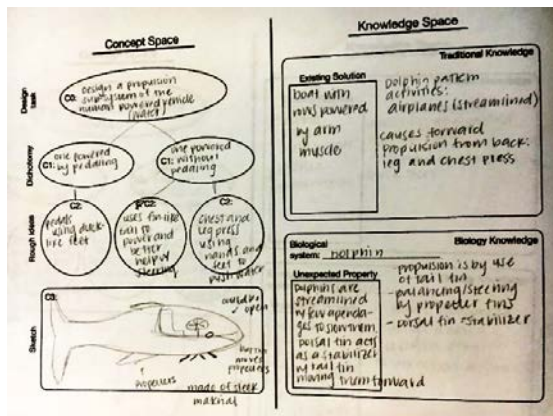 Concept Space
Design task
C0:
design a propulsion
subsystem of the
human powered vehicle
(water)
Dichotomy
one powered
C1: by pedaling
one powered
C1: without
pedaling
Rough ideas
C2:
pedals
using duck-
like feet
C2:
uses fin-like
tail to
power and
better
steering
C2:
chest and
leg press
using
hands and
feet to
push water
Sketch
C3:
open
moves
propellers
propellers
made of sleek
material
Knowledge Space
Traditional Knowledge
Existing Solution
boat with
powered
by arm
muscle
Dolphin pattern
activities:
airplanes (streamlined)
causes forward
propulsion from back:
leg and chest press
Biological
system: Dolphin
Biology Knowledge
Unexpected Property
Dolphins are
streamlined
w/ few appenda-
ges to slow them.
Dorsal fin acts
as a stabilizer
w/ tail fin
moving them forward
- propulsion is by use
of tail fin
- balancing/steering
by propeller fins
- dorsal fin = stabilizer